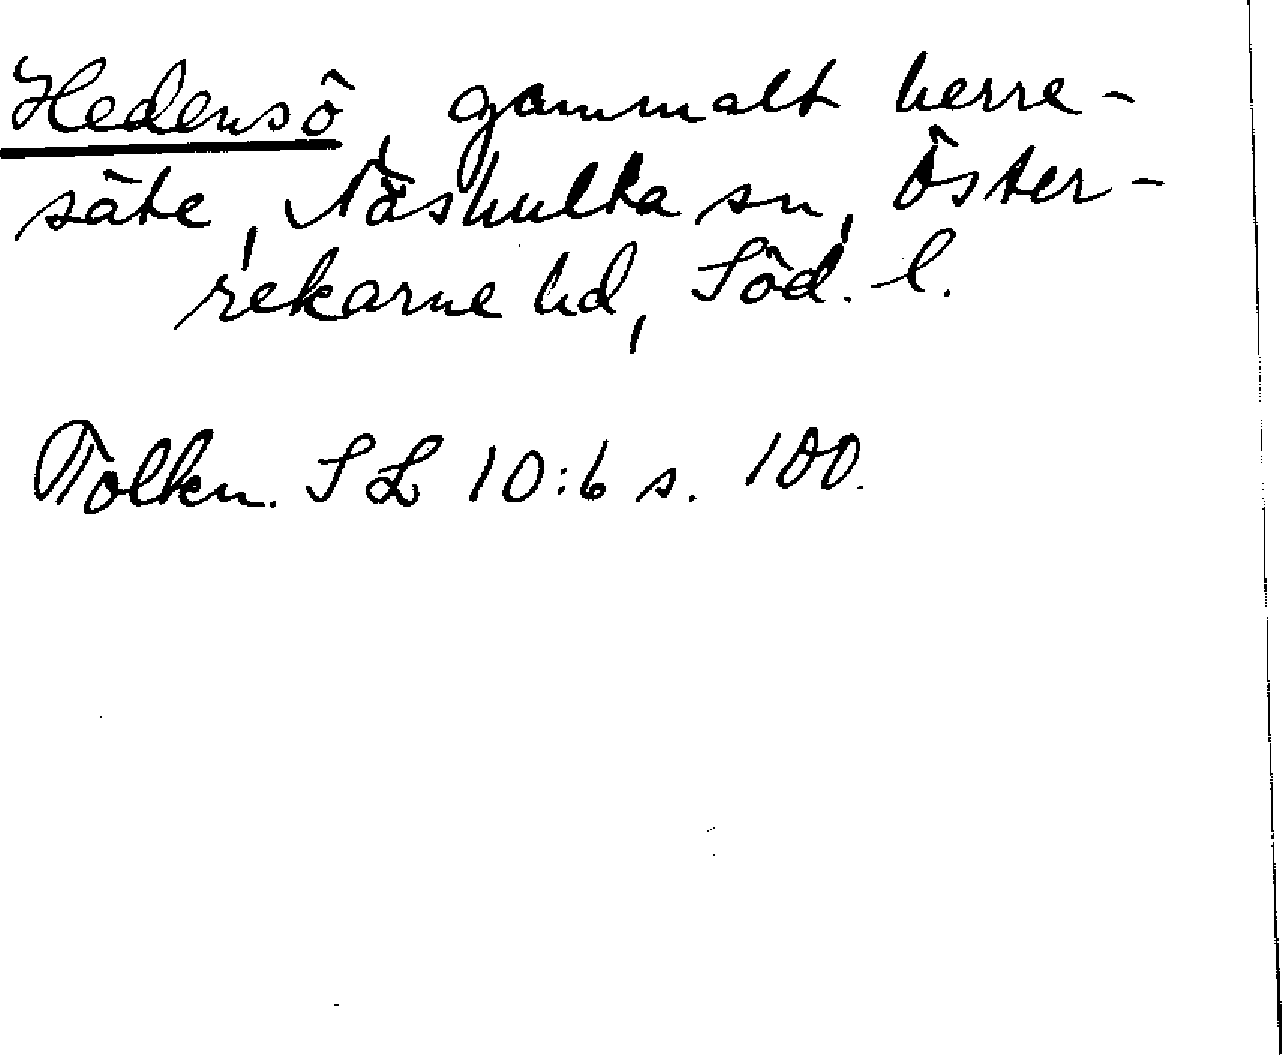 Hedensö, gammalt herre-
säte, Näshulta sn, Öster-
rekarne hd, Söd. l.
Tolkn. SL 10:6 s. 100.